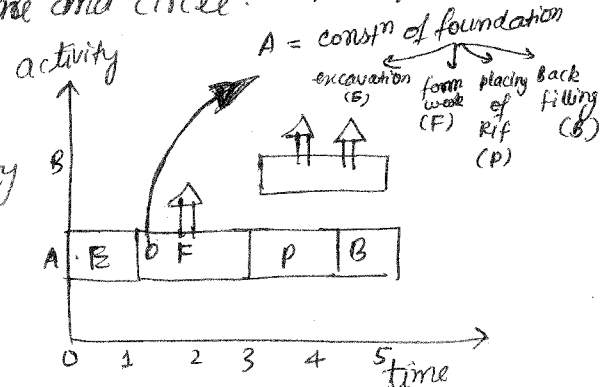 ne and circle.
A = constⁿ of foundation
activity
excavation (E)
form work (F)
placing of Rif (P)
Back filling (B)
B
A E F P B
0 1 2 3 4 5 time